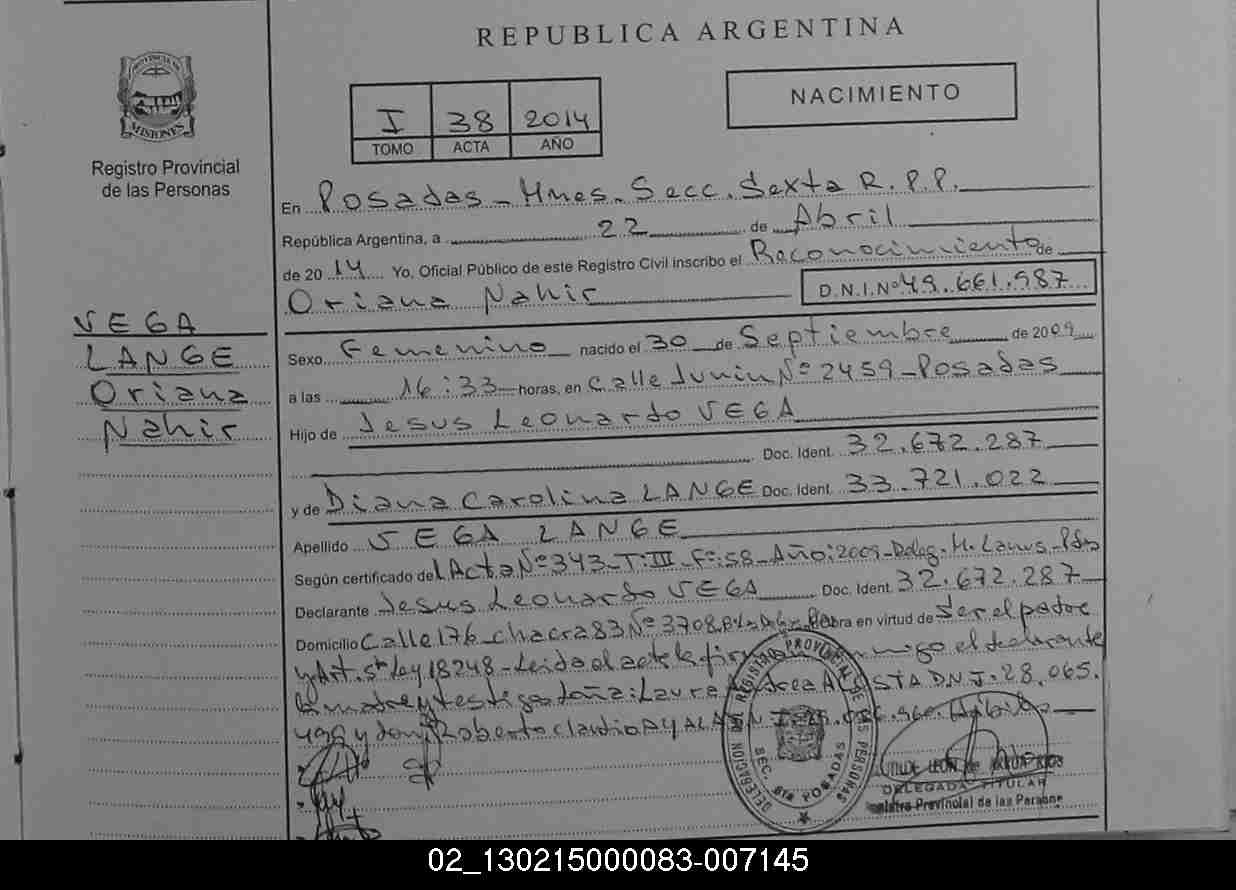 REPUBLICA ARGENTINA
PROVINCIA DE
MISIONES
Registro Provincial
de las Personas
I 38 2014
TOMO ACTA AÑO
NACIMIENTO
En Posadas - Mnes. Secc. Sexta R.P.P.
República Argentina, a 22 de Abril
de 2014 Yo, Oficial Público de este Registro Civil inscribo el Reconocimiento de
Oriana Nahir D.N.I. Nº 49.661.587
VEGA
LANGE
Oriana
Nahir
Sexo Femenino nacido el 30 de Septiembre de 2009
a las 16:33 horas, en Calle Junin Nº 2459 - Posadas
Hijo de Jesus Leonardo VEGA
Doc. Ident. 32.672.287
y de Diana Carolina LANGE Doc. Ident. 33.721.022
Apellido VEGA LANGE
Según certificado del Acta Nº 343 - T: III - Fº: 58 - Año: 2009 - Deleg. H. Lanus - Pdas
Declarante Jesus Leonardo VEGA Doc. Ident. 32.672.287
Domicilio Calle 176 - chacra 83 Nº 3708 obra en virtud de Ser el padre
y Art. 5º Ley 18248 - Leida el acta la el declarante
la madre y testigos doña: Laura DNI. 28.065.
y don: Roberto Claudio AYALA
DELEGACION DEL REGISTRO PROVINCIAL DE LAS PERSONAS
SEC. 6ta POSADAS
LEON de
DELEGADA TITULAR
Registro Provincial de las Personas
02_130215000083-007145